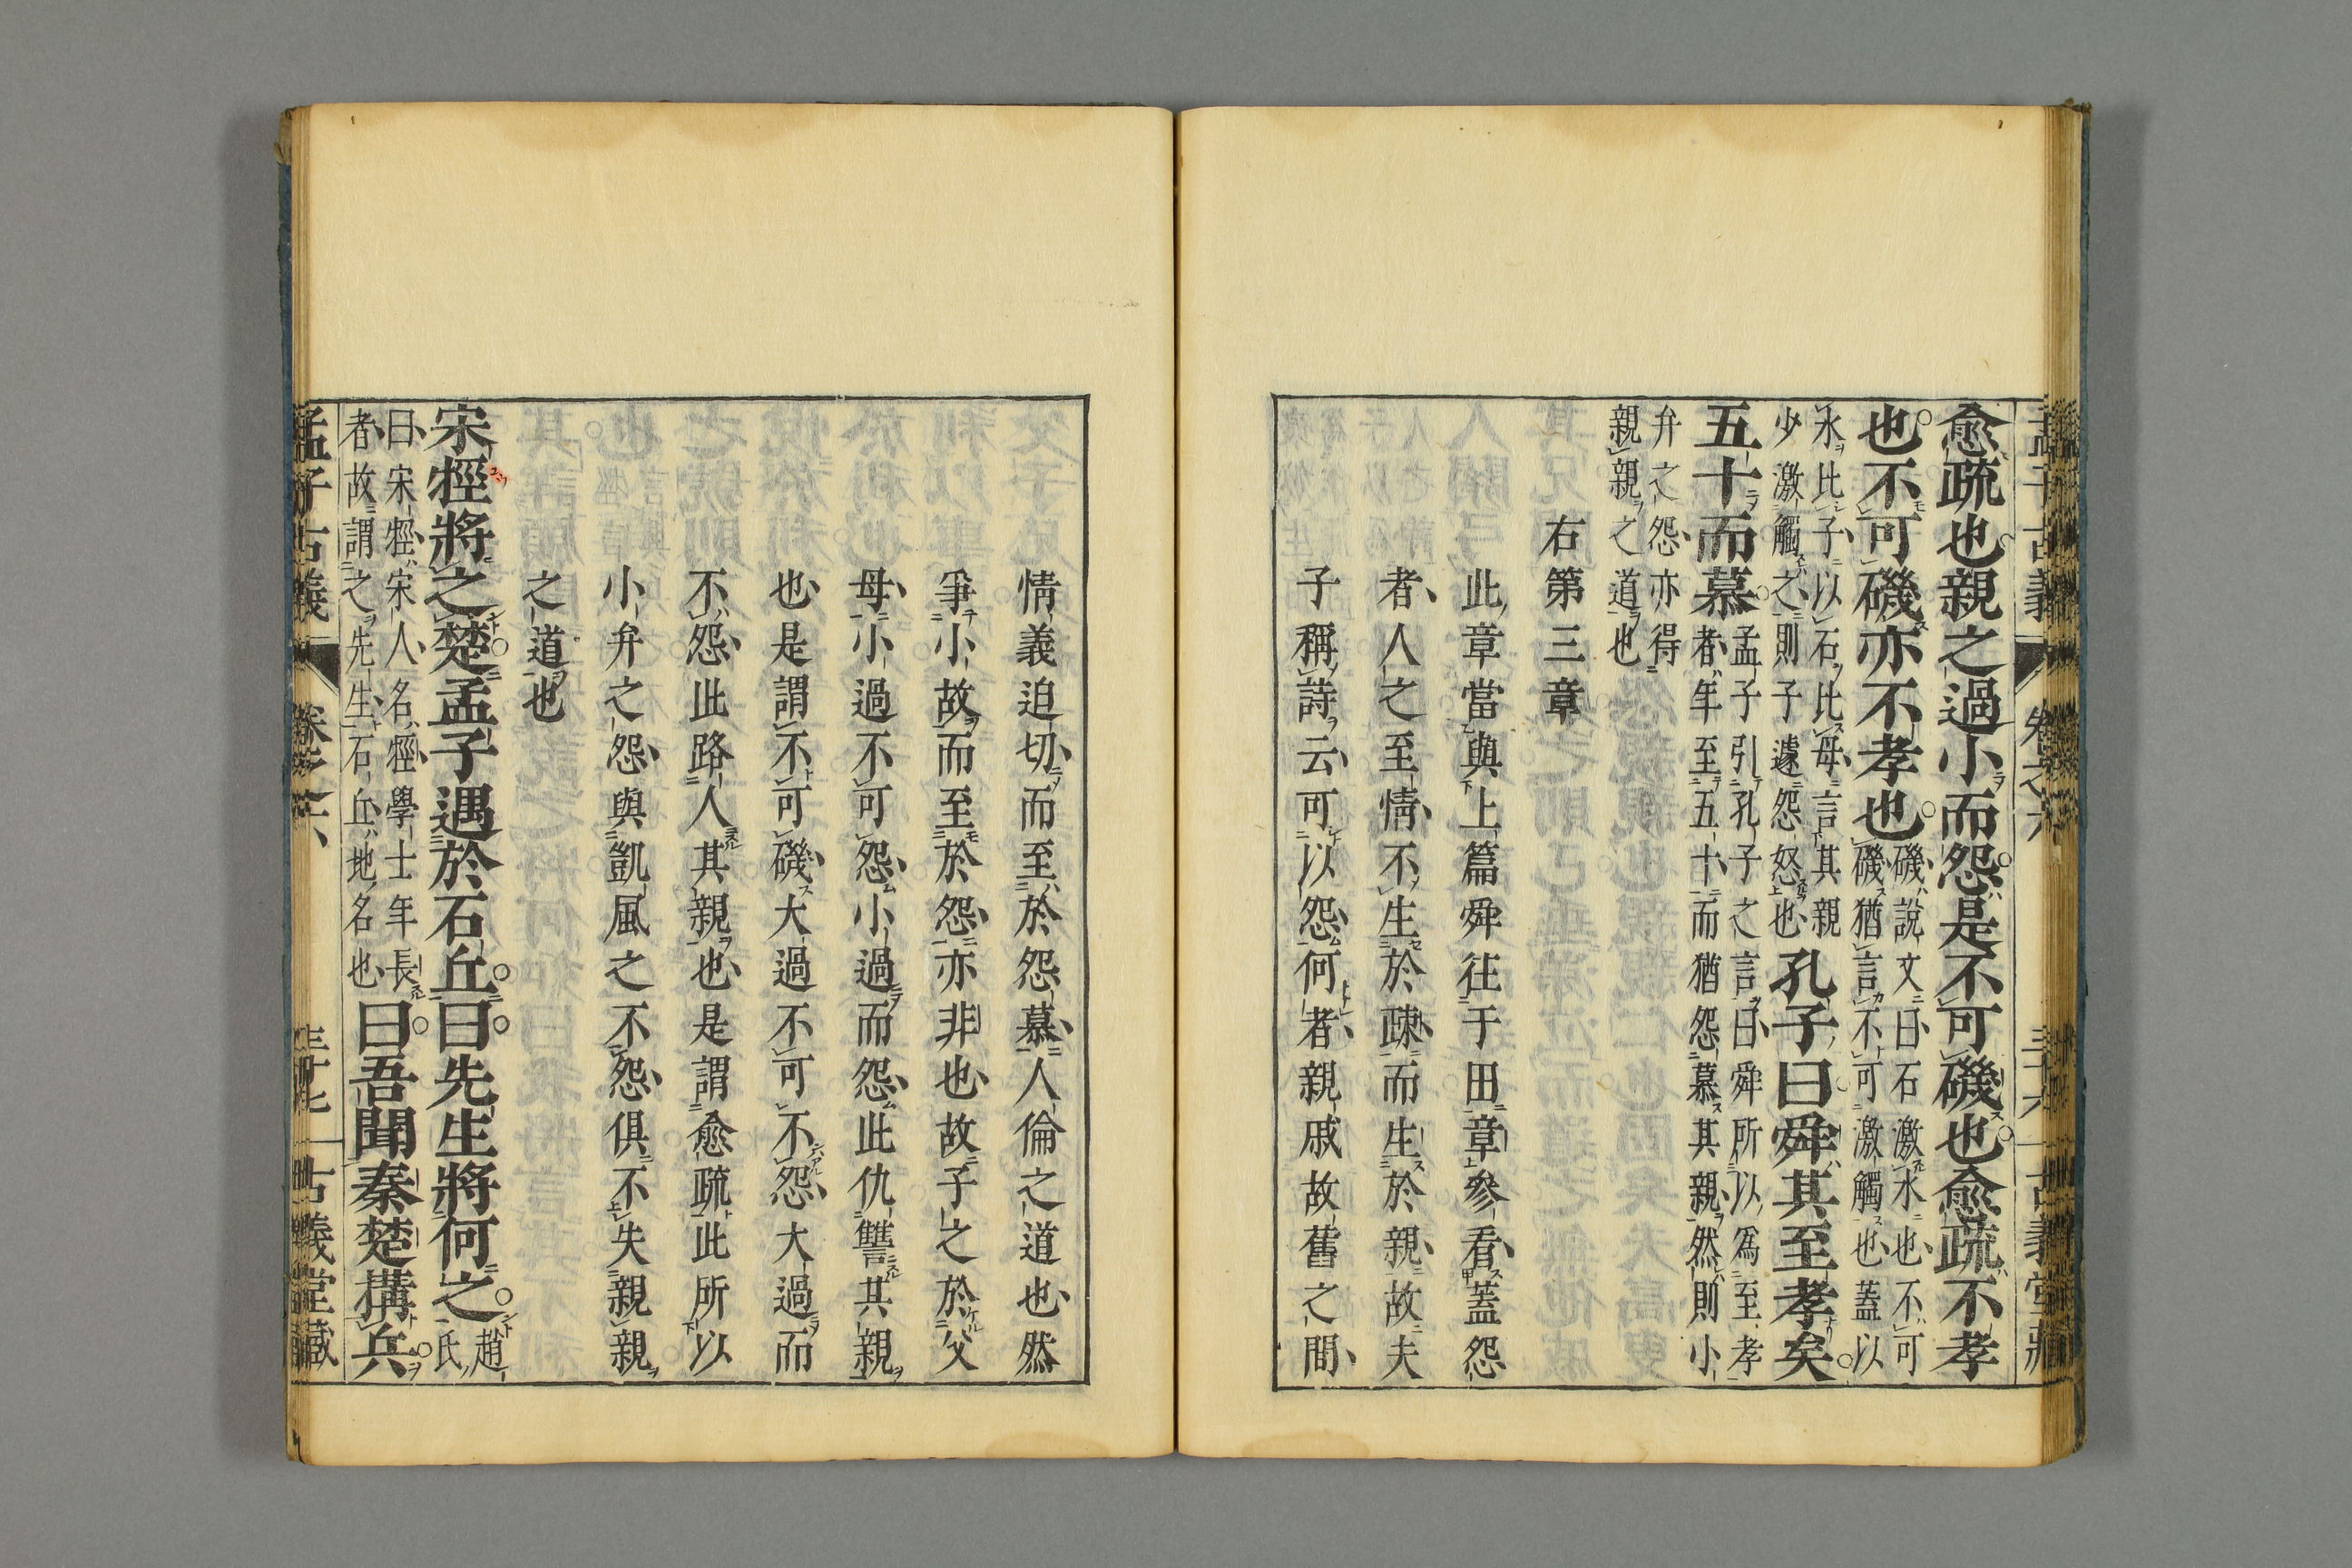 孟子古義　卷之六　三十六　古義堂藏
愈疏也親之過小而怨是不可磯也愈疏不孝
也不可磯亦不孝也磯說文曰石激水也不可
磯猶言不可激觸也蓋以
水比子以石比母言其親
少激觸之則子遽怒也孔子曰舜其至孝矣
五十而慕孟子引孔子之言曰舜所以爲至孝
者年至五十而猶怨慕其親然則小
弁之怨亦得
親親之道也
右第三章
此章當與上篇舜往于田章參看蓋怨
者人之至情不生於疎而生於親故夫
子稱詩云可以怨何者親戚故舊之間
情義迫切而至於怨慕人倫之道也然
爭小故而至於怨亦非也故子之於父
母小過不可怨小過而怨此仇讐其親
也是謂不可磯大過不可不怨大過而
不怨此路人其親也是謂愈疏此所以
小弁之怨與凱風之不怨俱不失親親
之道也
宋牼將之楚孟子遇於石丘曰先生將何之趙
氏
曰宋牼宋人名牼學士年長
者故謂之先生石丘地名也曰吾聞秦楚構兵
孟子古義　卷之六　三十七　古義堂藏